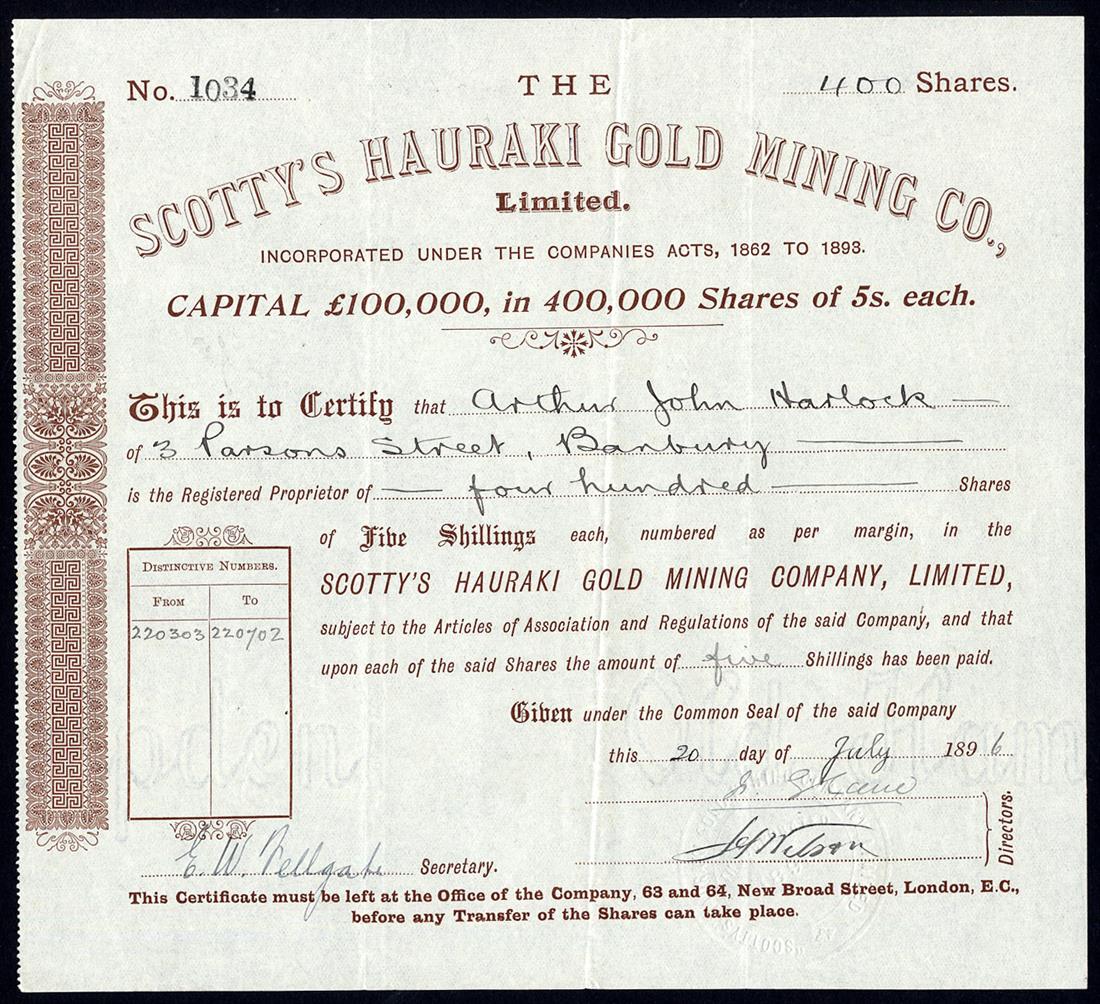 No. 1034 THE 400 Shares.
SCOTTY'S HAURAKI GOLD MINING CO.,
Limited.
INCORPORATED UNDER THE COMPANIES ACTS, 1862 TO 1893.
CAPITAL £100,000, in 400,000 Shares of 5s. each.
This is to Certify that Arthur John Harlock
of 3 Parsons Street, Banbury
is the Registered Proprietor of four hundred Shares
of Five Shillings each, numbered as per margin, in the
SCOTTY'S HAURAKI GOLD MINING COMPANY, LIMITED,
subject to the Articles of Association and Regulations of the said Company, and that
upon each of the said Shares the amount of five Shillings has been paid.
DISTINCTIVE NUMBERS.
FROM TO
220303 220702
Given under the Common Seal of the said Company
this 20 day of July 1896
Wilson
Directors.
E. W. Secretary.
This Certificate must be left at the Office of the Company, 63 and 64, New Broad Street, London, E.C.,
before any Transfer of the Shares can take place.